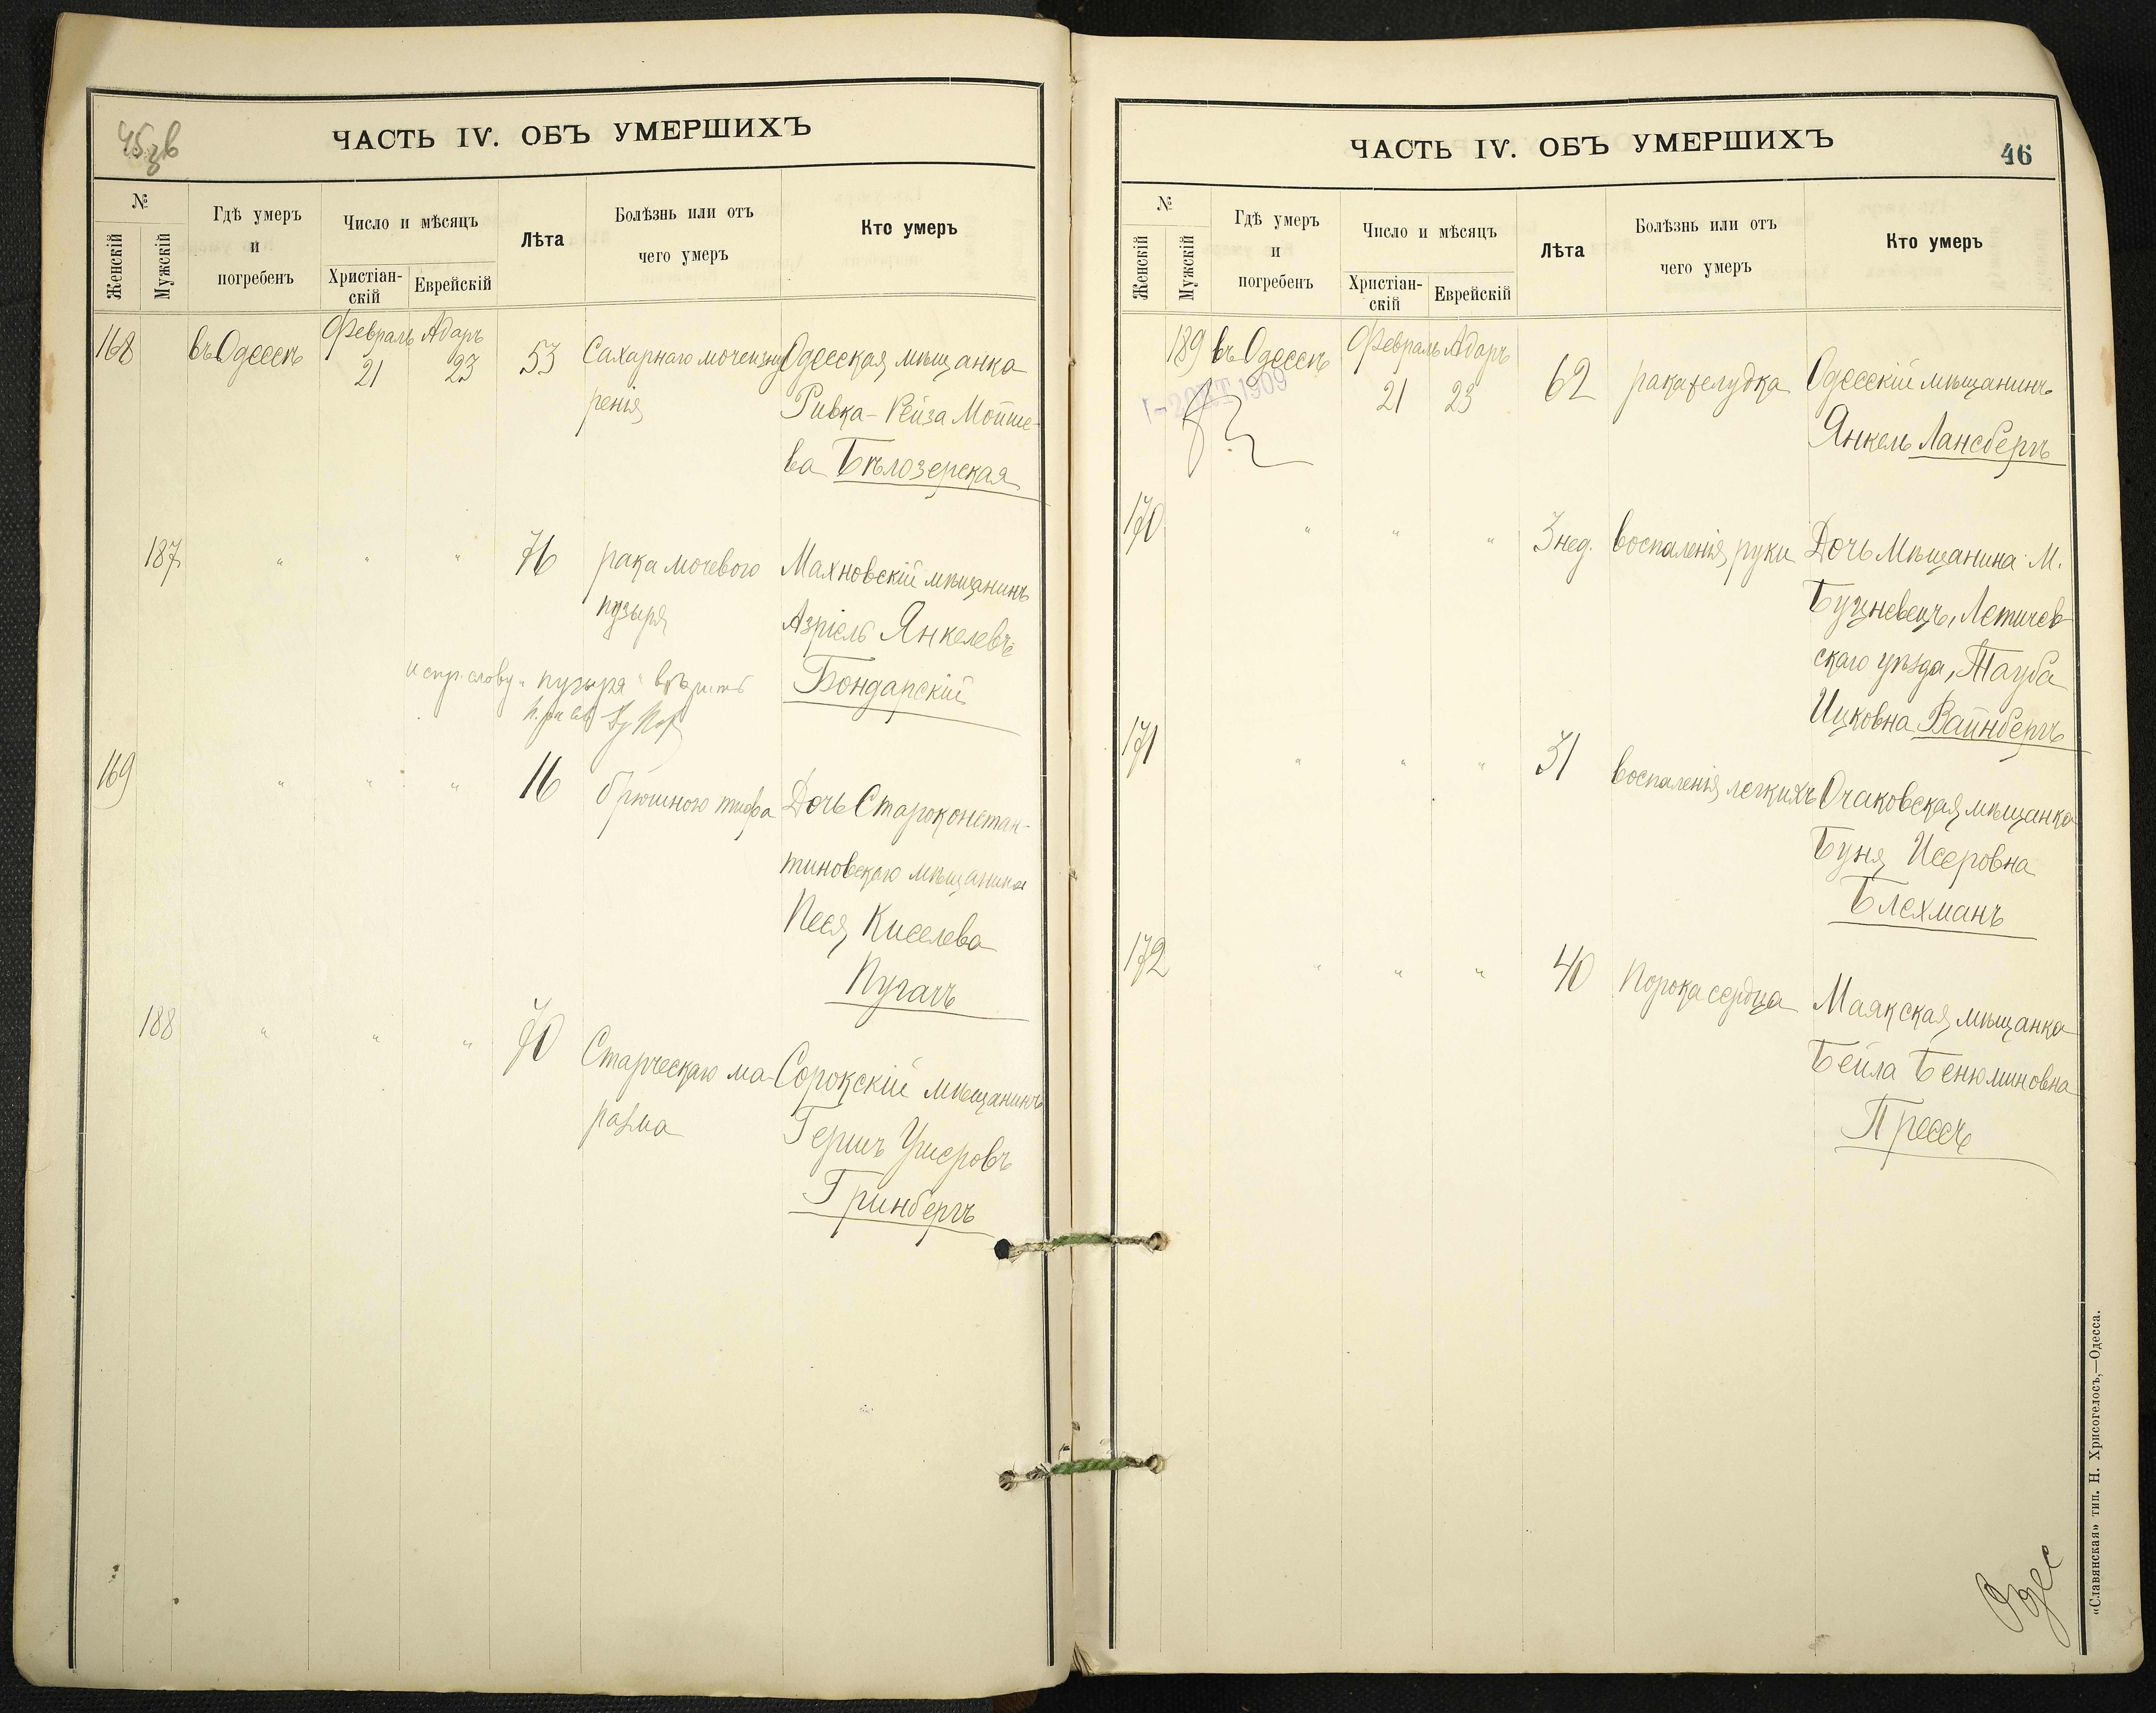 45 зв
ЧАСТЬ IV. ОБЪ УМЕРШИХЪ
№
Женскій
Мужскій
Гдѣ умеръ
и
погребенъ
Число и мѣсяцъ
Христіан-
скій
Еврейскій
Лѣта
Болѣзнь или отъ
чего умеръ
Кто умеръ
168 въ Одессѣ Февраль Адаръ
21 23 53 Сахарнаго мочеизну Одесская мѣщанка
ренія Ривка-Рейза Мойше-
ва Бѣлозерская
187 " " " 76 рака мочевого Махновскій мѣщанинъ
пузыря Азріель Янкелевъ
испр. слову "пузыря" вѣрить Бондарскій
169 " " " 16 брюшного тифа Дочь Староконстан-
тиновскаго мѣщанина
Песя Киселева
Пугачъ
188 " " " 70 Старческаго ма- Сорокскій мѣщанинъ
разма Гершъ Ушеровъ
Гринбергъ
ЧАСТЬ IV. ОБЪ УМЕРШИХЪ
46
№
Женскій
Мужскій
Гдѣ умеръ
и
погребенъ
Число и мѣсяцъ
Христіан-
скій
Еврейскій
Лѣта
Болѣзнь или отъ
чего умеръ
Кто умеръ
189 въ Одессѣ Февраль Адаръ
21 23 62 рака желудка Одесскій мѣщанинъ
1909
Янкель Лансбергъ
170 " " " 3 нед. воспаленія руки Дочь Мѣщанина М.
Буцневецъ, Летичев
скаго уѣзда, Тауба
Ицковна Вайнбергъ
171 " " " 31 воспаленія легкихъ Очаковская мѣщанка
Буня Исеровна
Блехманъ
172 " " " 40 Порока сердца Маякская мѣщанка
Бейла Бенюминовна
Прессъ
Одес
«Славянская» тип. Н. Хрисогелосъ,—Одесса.